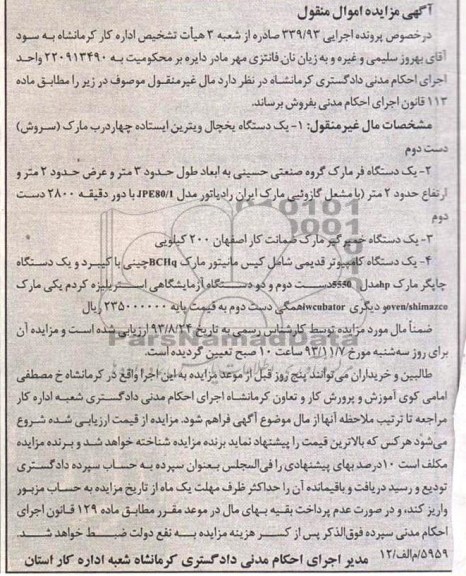 آگهی مزایده اموال منقول
درخصوص پرونده اجرایی ۳۳۹/۹۳ صادره از شعبه ۳ هیأت تشخیص اداره کار کرمانشاه به سود
آقای بهروز سلیمی و غیره و به زیان نان فانتزی مهر مادر دایره بر محکومیت به ۲۲۰۹۱۳۴۹۰ واحد
اجرای احکام مدنی دادگستری کرمانشاه در نظر دارد مال غیرمنقول موصوف در زیر را مطابق ماده
۱۱۳ قانون اجرای احکام مدنی بفروش برساند.
مشخصات مال غیرمنقول: ۱- یک دستگاه یخچال ویترین ایستاده چهاردرب مارک (سروش)
دست دوم
۲- یک دستگاه فر مارک گروه صنعتی حسینی به ابعاد طول حدود ۳ متر و عرض حدود ۲ متر و
ارتفاع حدود ۲ متر (با مشعل گازوئیی مارک ایران رادیاتور مدل JPE80/1 با دور دقیقه ۲۸۰۰ دست
دوم
۳- یک دستگاه خمیرگیر مارک ضمانت کار اصفهان ۲۰۰ کیلویی
۴- یک دستگاه کامپیوتر قدیمی شامل کیس مانیتور مارک BCHq چینی با کیبرد و یک دستگاه
چاپگر مارک hp مدل 5550 دست دوم و دو دستگاه آزمایشگاهی استریلیزه کردم یکی مارک
oven/shimazco و دیگری iwcubator همگی دست دوم به قیمت پایه ۲۳۵۰۰۰۰۰۰ ریال
ضمناً مال مورد مزایده توسط کارشناس رسمی به تاریخ ۹۳/۸/۲۴ ارزیابی شده است و مزایده آن
برای روز سه‌شنبه مورخ ۹۳/۱۱/۷ ساعت ۱۰ صبح تعیین گردیده است.
طالبین و خریداران می‌توانند پنج روز قبل از موعد مزایده به این اجرا واقع در کرمانشاه خ مصطفی
امامی کوی آموزش و پرورش کار و تعاون کرمانشاه اجرای احکام مدنی دادگستری شعبه اداره کار
مراجعه تا ترتیب ملاحظه آنها از مال موضوع آگهی فراهم شود. مزایده از قیمت ارزیابی شده شروع
می‌شود هرکس که بالاترین قیمت را پیشنهاد نماید برنده مزایده شناخته خواهد شد و برنده مزایده
مکلف است ۱۰درصد بهای پیشنهادی را فی‌المجلس بعنوان سپرده به حساب سپرده دادگستری
تودیع و رسید دریافت و باقیمانده آن را حداکثر ظرف مهلت یک ماه از تاریخ مزایده به حساب مزبور
واریز کند، و در صورت عدم پرداخت بقیه بهای مال در موعد مقرر مطابق ماده ۱۲۹ قانون اجرای
احکام مدنی سپرده فوق‌الذکر پس از کسر هزینه مزایده به نفع دولت ضبط خواهد شد.
۵۹۵۹/م‌الف/۱۲
مدیر اجرای احکام مدنی دادگستری کرمانشاه شعبه اداره کار استان
ParsNamadData